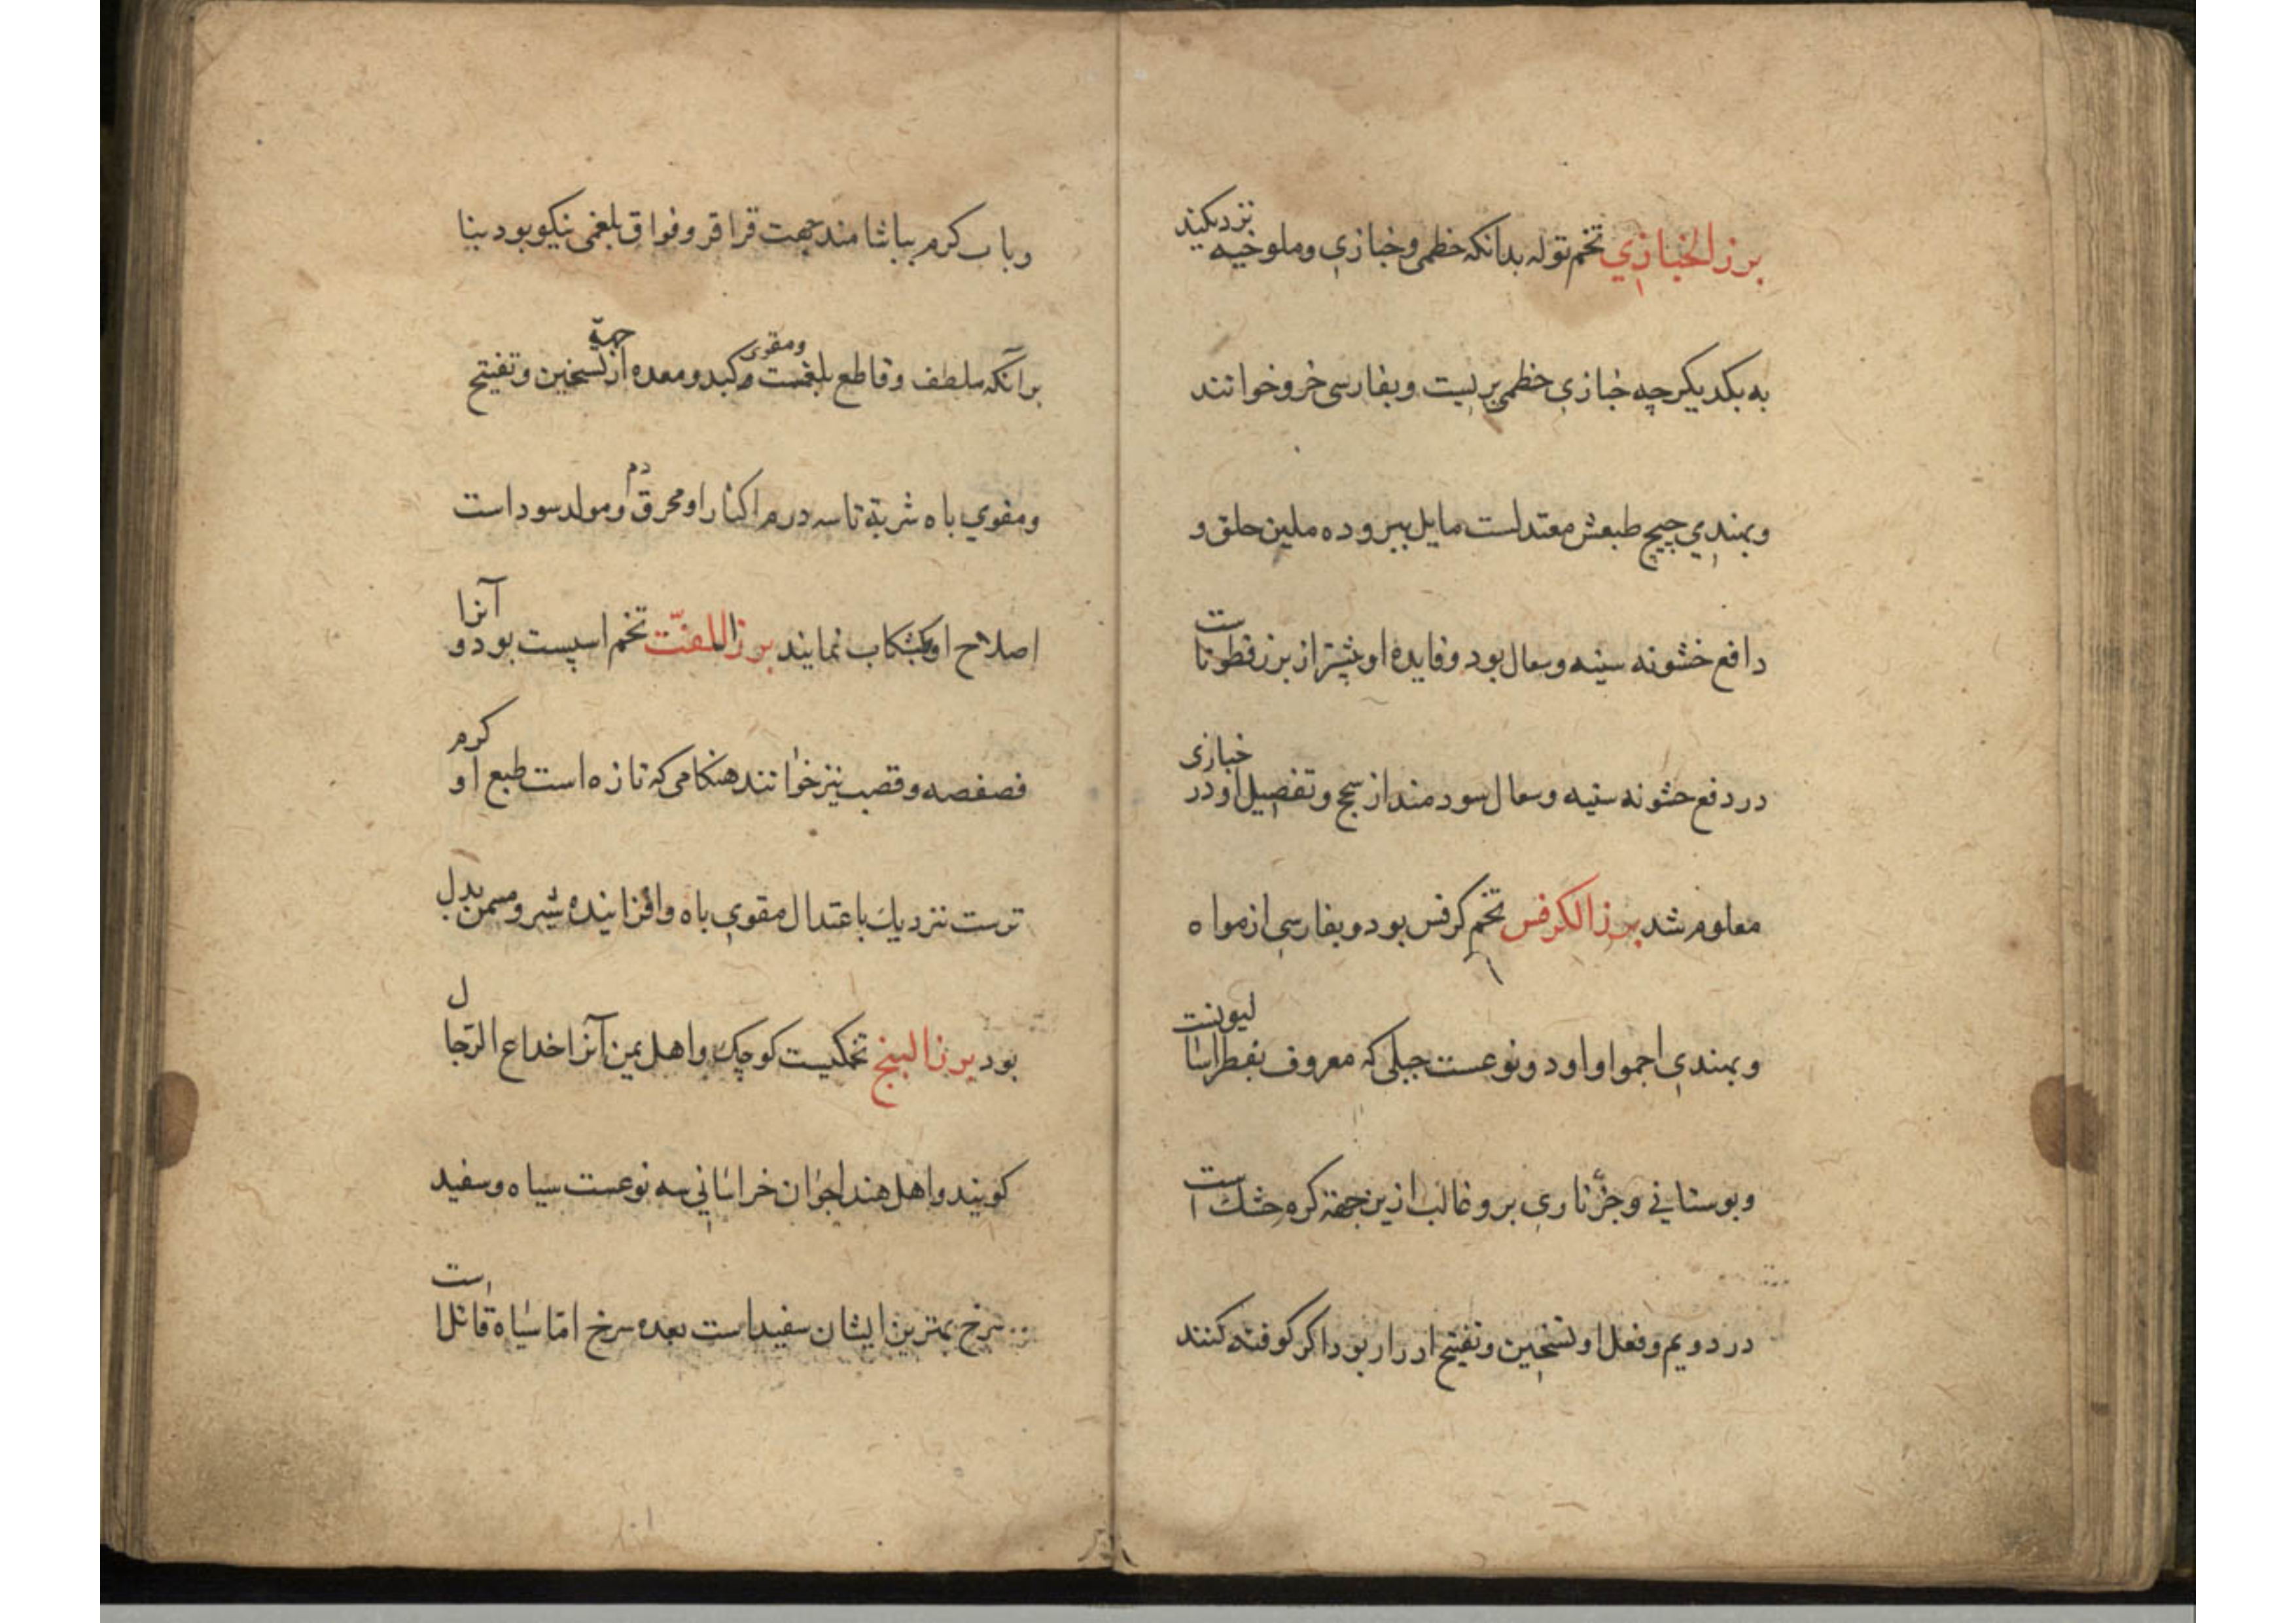 برز الخبازي تخم توله بدانکه خطمی و خبازي و ملوخیه نزدیکند
به یکدیکر چه خبازي خطمی بریست و بفارسی خرو خوانند
و بهندي چیچ طبعش معتدلست مایل ببروده ملین حلق و
دافع خشونه سینه و سعال بود و فایده او بیشتر از برز قطوناست
در دفع خشونه سینه و سعال سودمند از سحج و تفصیل او در خبازی
معلوم شد برز الکرفس تخم کرفس بود و بفارسی از مواه
و بهندي اجمواواود و نوعست جبلی که معروف بفطراسالیونست
و بوستانی و جزٔ ناري برو غالب ازین جهة کره خشک است
در دویم و فعل او تسخین و تفتیح ادرار بود اکر کوفته کنند
و با ب کرم بیاشامند جهت قراقر و فواق بلغمی نیکو بود بنا
برآنکه ملطف و قاطع بلغمست و مقوی کبد و معده از جهة تسخین و تفتیح
و مقوي باه شربة تا سه درم اکثار او محرق دم و مولد سود است
اصلاح او بکشکاب نمایند برز اللفتّ تخم اسپست بود و آنرا
فصفصه و قصب نیز خوانند هنکامی که تازه است طبع او کرم
ترست نزدیك باعتدال مقوي باه و افزاینده شیر و مسمن بدل
بود برز البنج تخمکیست کوچک و اهل یمن آنرا خداع الرّجال
کویند و اهل هند اجوان خراسانی سه نوعست سیاه و سفید
سرخ بهترین ایشان سفید است بعده سرخ امّا سیاه قاتل است